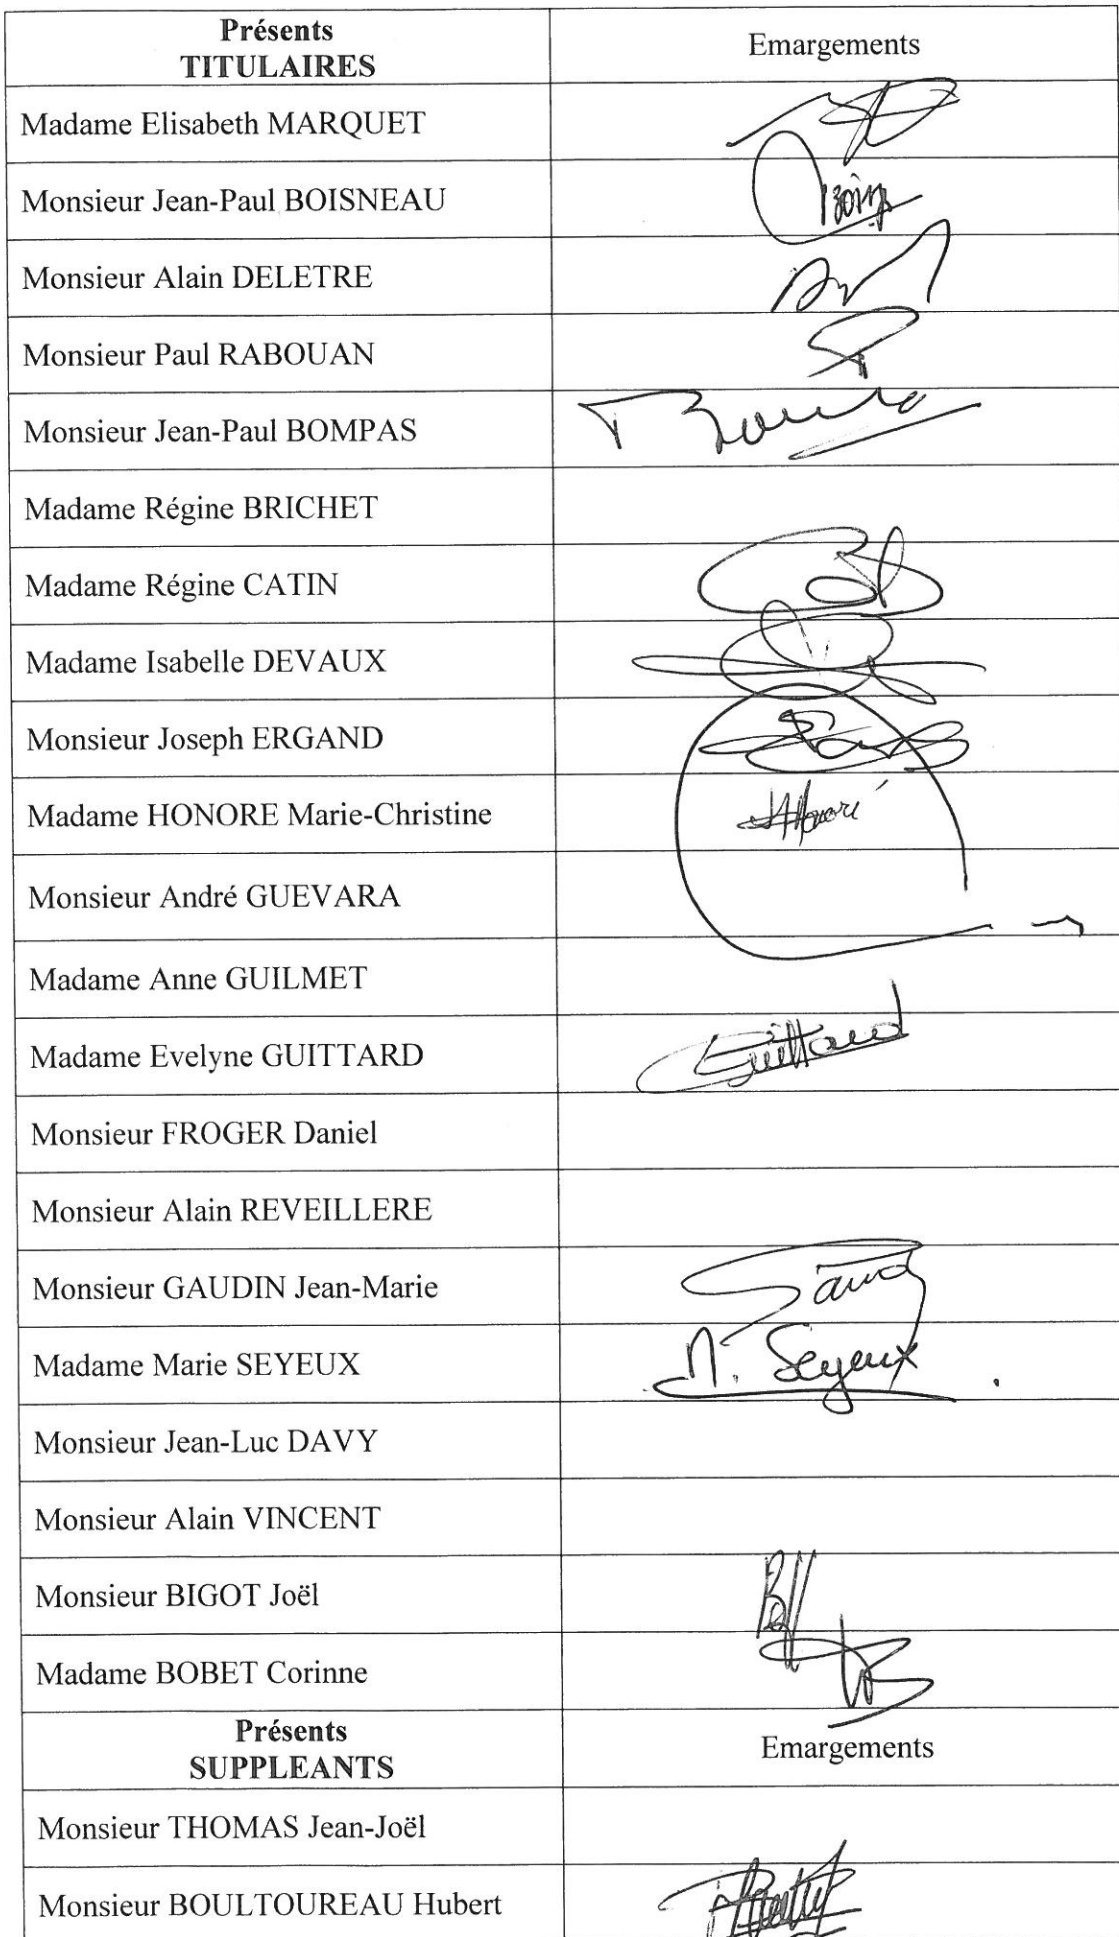 Présents
TITULAIRES
Emargements
Madame Elisabeth MARQUET
Monsieur Jean-Paul BOISNEAU
Monsieur Alain DELETRE
Monsieur Paul RABOUAN
Monsieur Jean-Paul BOMPAS
Madame Régine BRICHET
Madame Régine CATIN
Madame Isabelle DEVAUX
Monsieur Joseph ERGAND
Madame HONORE Marie-Christine
Monsieur André GUEVARA
Madame Anne GUILMET
Madame Evelyne GUITTARD
Guittard
Monsieur FROGER Daniel
Monsieur Alain REVEILLERE
Monsieur GAUDIN Jean-Marie
Madame Marie SEYEUX
M. Seyeux
Monsieur Jean-Luc DAVY
Monsieur Alain VINCENT
Monsieur BIGOT Joël
Madame BOBET Corinne
Présents
SUPPLEANTS
Emargements
Monsieur THOMAS Jean-Joël
Monsieur BOULTOUREAU Hubert